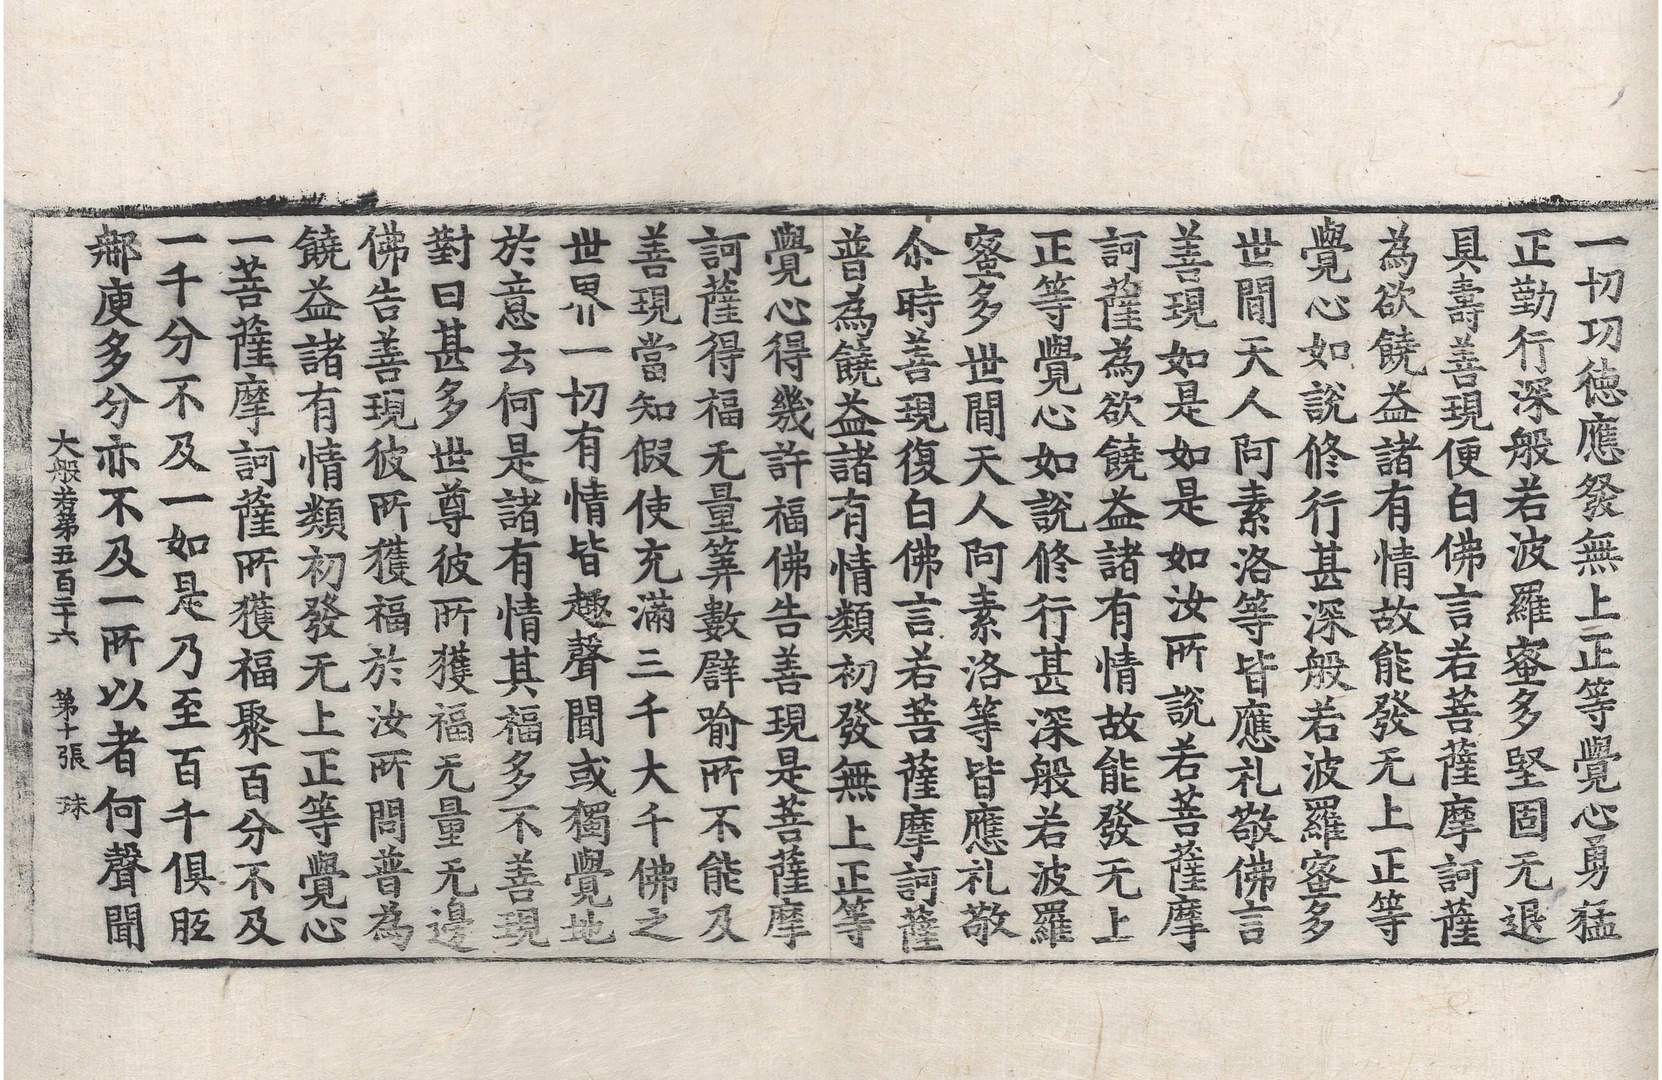 一切功徳應發無上正等覺心勇猛
正勤行深般若波羅蜜多堅固无退
具壽善現便白佛言若菩薩摩訶薩
為欲饒益諸有情故能發无上正等
覺心如說修行甚深般若波羅蜜多
世間天人阿素洛等皆應礼敬佛言
善現如是如是如汝所說若菩薩摩
訶薩為欲饒益諸有情故能發无上
正等覺心如說修行甚深般若波羅
蜜多世間天人阿素洛等皆應礼敬
尒時善現復白佛言若菩薩摩訶薩
普為饒益諸有情類初發無上正等
覺心得幾許福佛告善現是菩薩摩
訶薩得福无量筭數譬喻所不能及
善現當知假使充滿三千大千佛之
世界一切有情皆趣聲聞或獨覺地
於意云何是諸有情其福多不善現
對曰甚多世尊彼所獲福无量无邊
佛告善現彼所獲福於汝所問普為
饒益諸有情類初發无上正等覺心
一菩薩摩訶薩所獲福聚百分不及
一千分不及一如是乃至百千俱胝
那庾多分亦不及一所以者何聲聞
大般若第五百二十六 第十張 珠